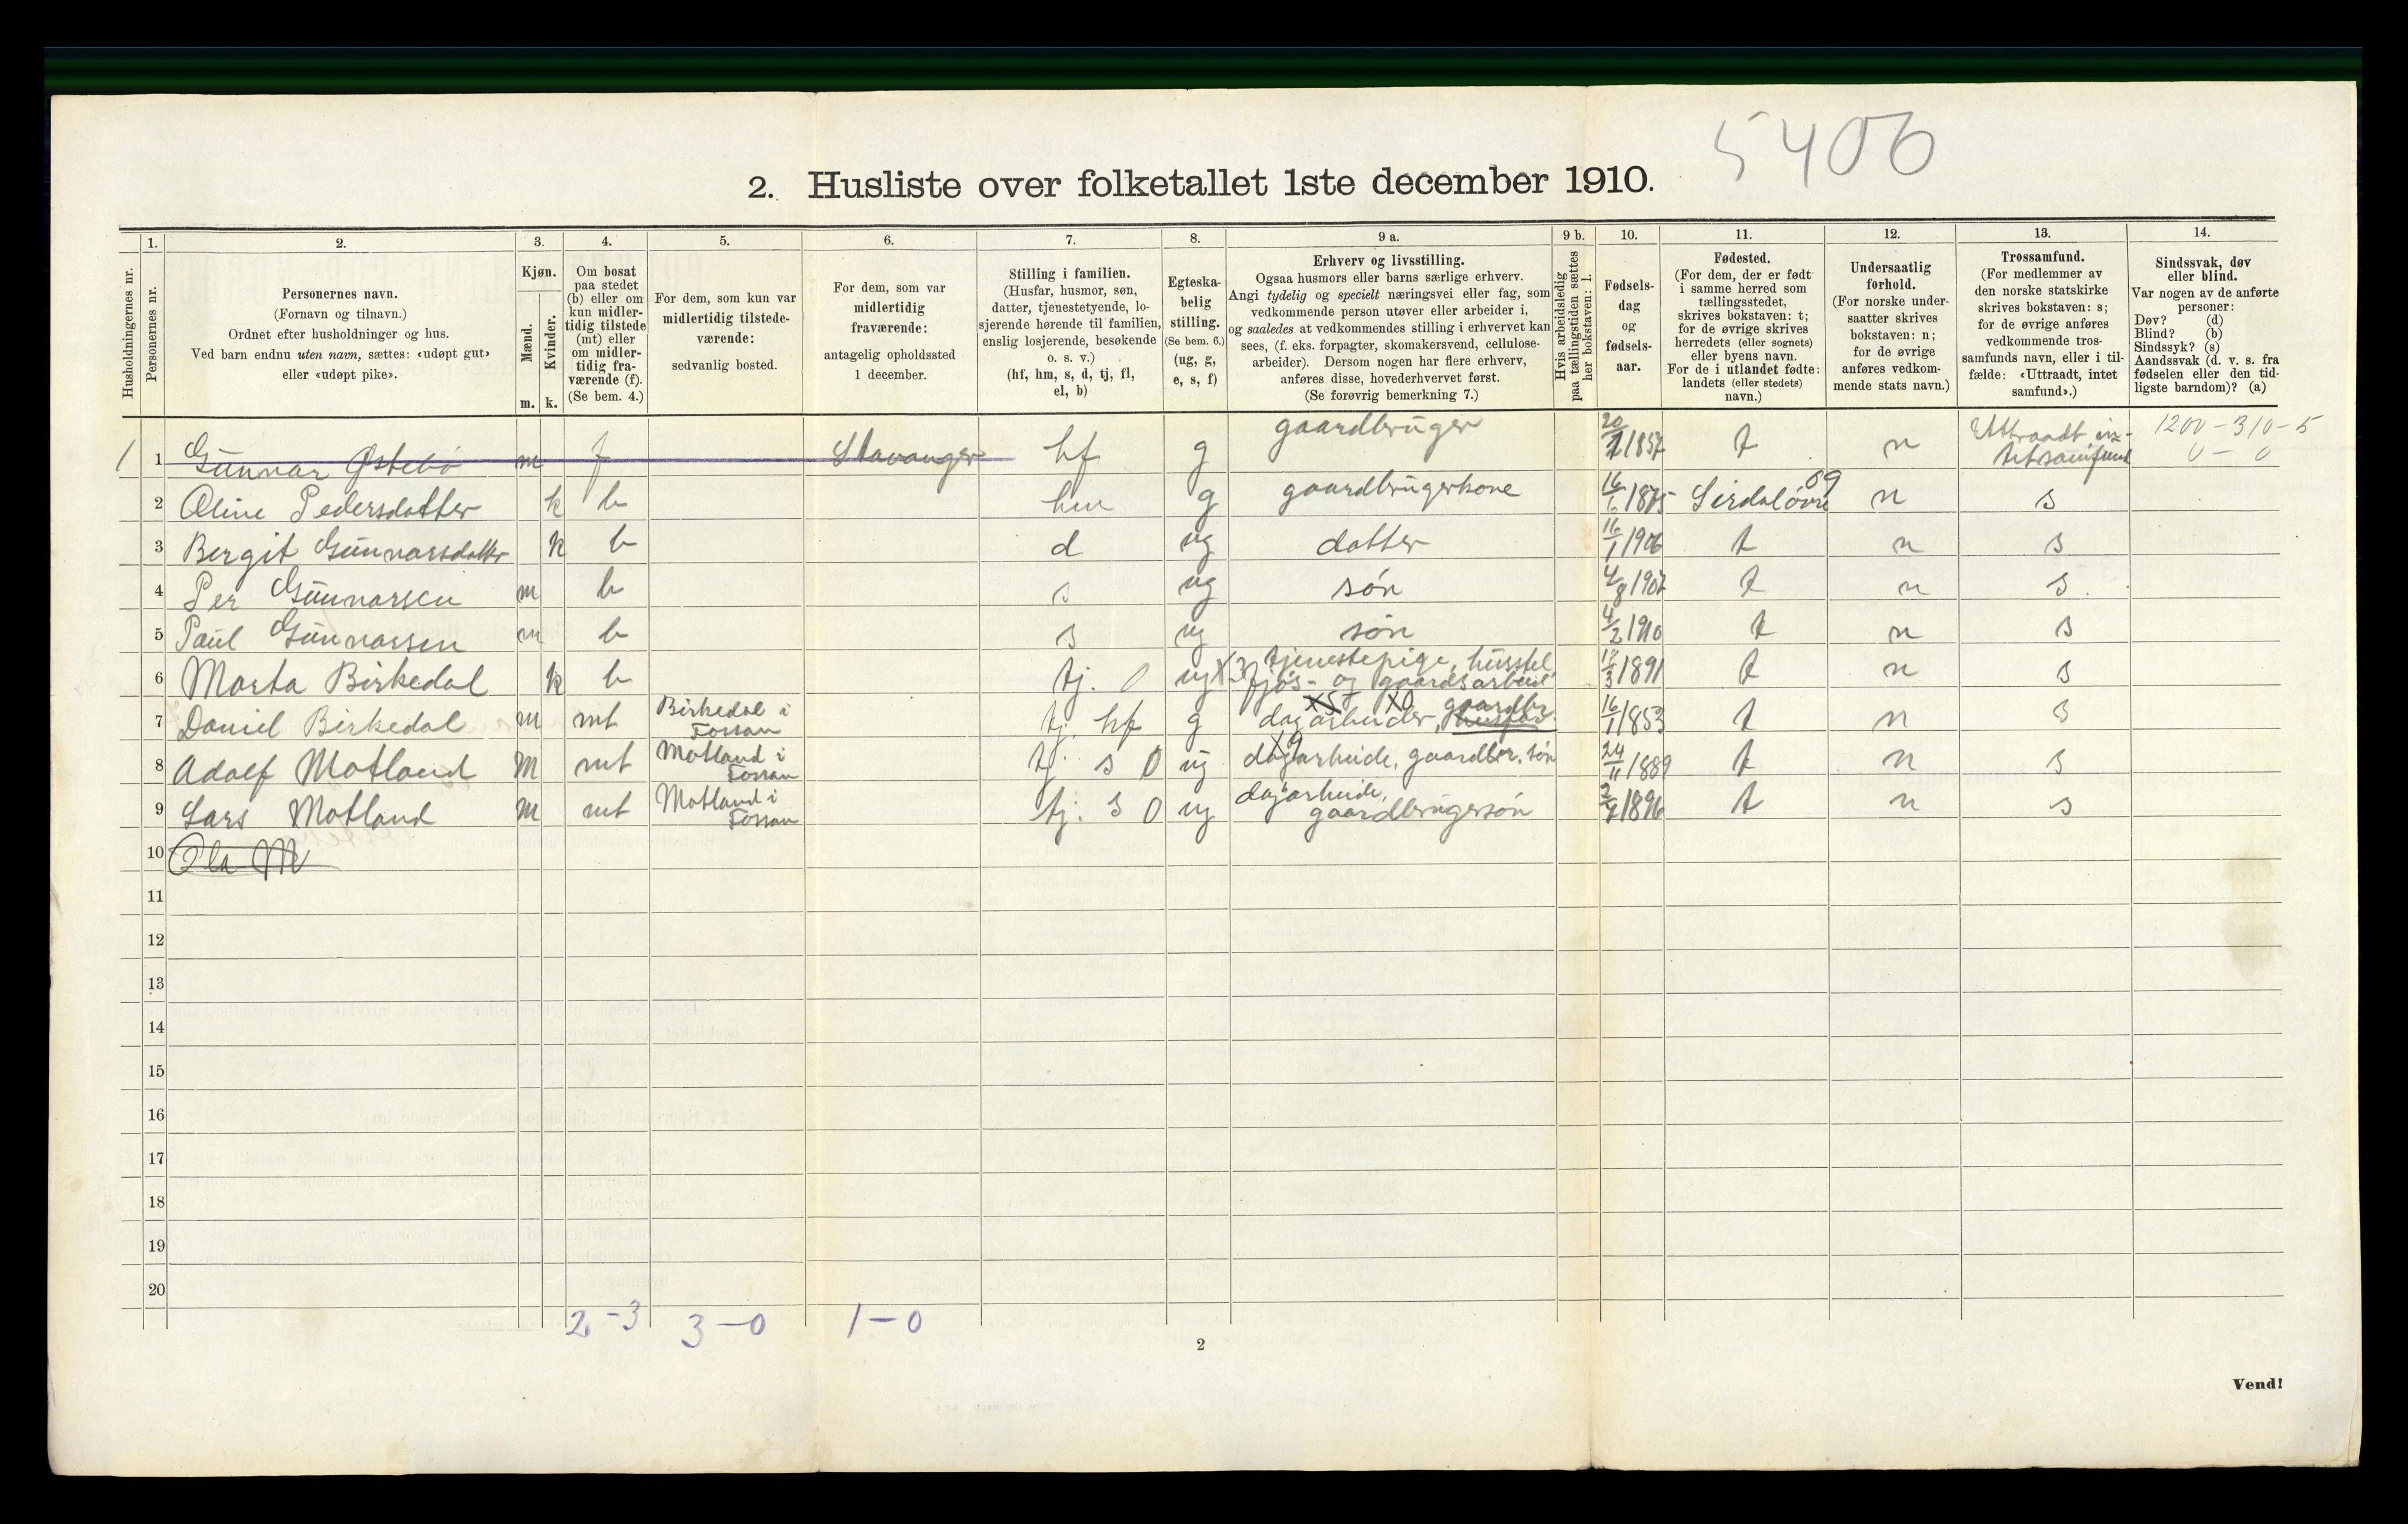 5406
2. Husliste over folketallet 1ste december 1910.
Husholdningernes nr.
1.
Personernes nr.
2.
Personernes navn.
(Fornavn og tilnavn.)
Ordnet efter husholdninger og hus.
Ved barn endnu uten navn, sættes: «udøpt gut»
eller «udøpt pike».
3.
Kjøn.
Mænd.
Kvinder.
m. k.
4.
Om bosat
paa stedet
(b) eller om
kun midler-
tidig tilstede
(mt) eller
om midler-
tidig fra-
værende (f).
(Se bem. 4.)
5.
For dem, som kun var
midlertidig tilstede-
værende:
sedvanlig bosted.
6.
For dem, som var
midlertidig
fraværende:
antagelig opholdssted
1 december.
7.
Stilling i familien.
(Husfar, husmor, søn,
datter, tjenestetyende, lo-
sjerende hørende til familien,
enslig losjerende, besøkende
o. s. v.)
(hf, hm, s, d, tj, fl,
el, b)
8.
Egteska-
belig
stilling.
(Se bem. 6.)
(ug, g,
e, s, f)
9 a.
Erhverv og livsstilling.
Ogsaa husmors eller barns særlige erhverv.
Angi tydelig og specielt næringsvei eller fag, som
vedkommende person utøver eller arbeider i,
og saaledes at vedkommendes stilling i erhvervet kan
sees, (f. eks. forpagter, skomakersvend, cellulose-
arbeider). Dersom nogen har flere erhverv,
anføres disse, hovederhvervet først.
(Se forøvrig bemerkning 7.)
9 b.
Hvis arbeidsledig
paa tællingstiden sættes
her bokstaven: l.
10.
Fødsels-
dag
og
fødsels-
aar.
11.
Fødested.
(For dem, der er født
i samme herred som
tællingsstedet,
skrives bokstaven: t;
for de øvrige skrives
herredets (eller sognets)
eller byens navn.
For de i utlandet fødte:
landets (eller stedets)
navn.)
12.
Undersaatlig
forhold.
(For norske under-
saatter skrives
bokstaven: n;
for de øvrige
anføres vedkom-
mende stats navn.)
13.
Trossamfund.
(For medlemmer av
den norske statskirke
skrives bokstaven: s;
for de øvrige anføres
vedkommende tros-
samfunds navn, eller i til-
fælde: «Uttraadt, intet
samfund».)
14.
Sindssvak, døv
eller blind.
Var nogen av de anførte
personer:
Døv? (d)
Blind? (b)
Sindssyk? (s)
Aandssvak (d. v. s. fra
fødselen eller den tid-
ligste barndom)? (a)
1 1 Gunnar Østebø m f Stavanger hf g gaardbruger 20/ 1857 t n Uttraadt
1200-310-5
0-0
2 Oline Pedersdatter k b hm g gaardbrugerkone 16/1 1875 Sirdal øvre 89 n s
3 Bergit Gunnarsdatter k b d ug datter 16/1 1906 t n s
4 Per Gunnarsen m b s ug søn 4/8 1907 t n s
5 Paul Gunnarsen m b s ug søn 4/2 1910 t n s
6 Marta Birkedal k b tj. 0 ug X3 tjenestepige, husstel
fjøs- og gaardsarbeid 12/3 1891 t n s
7 Daniel Birkedal m mt Birkedal i
Fossan tj. hf g X5 X0 gaardbr.
dagarbeider, husfar 16/1 1853 t n s
8 Adolf Motland m mt Motland i
Fossan tj. s 0 ug X9
dagarbeide, gaardbr. søn 24/11 1889 t n s
9 Lars Motland m mt Motland i
Fossan tj. s 0 ug dagarbeide,
gaardbrugersøn 2/ 1896 t n s
10 Ola M
11
12
13
14
15
16
17
18
19
20
2-3 3-0 1-0
2
Vend!